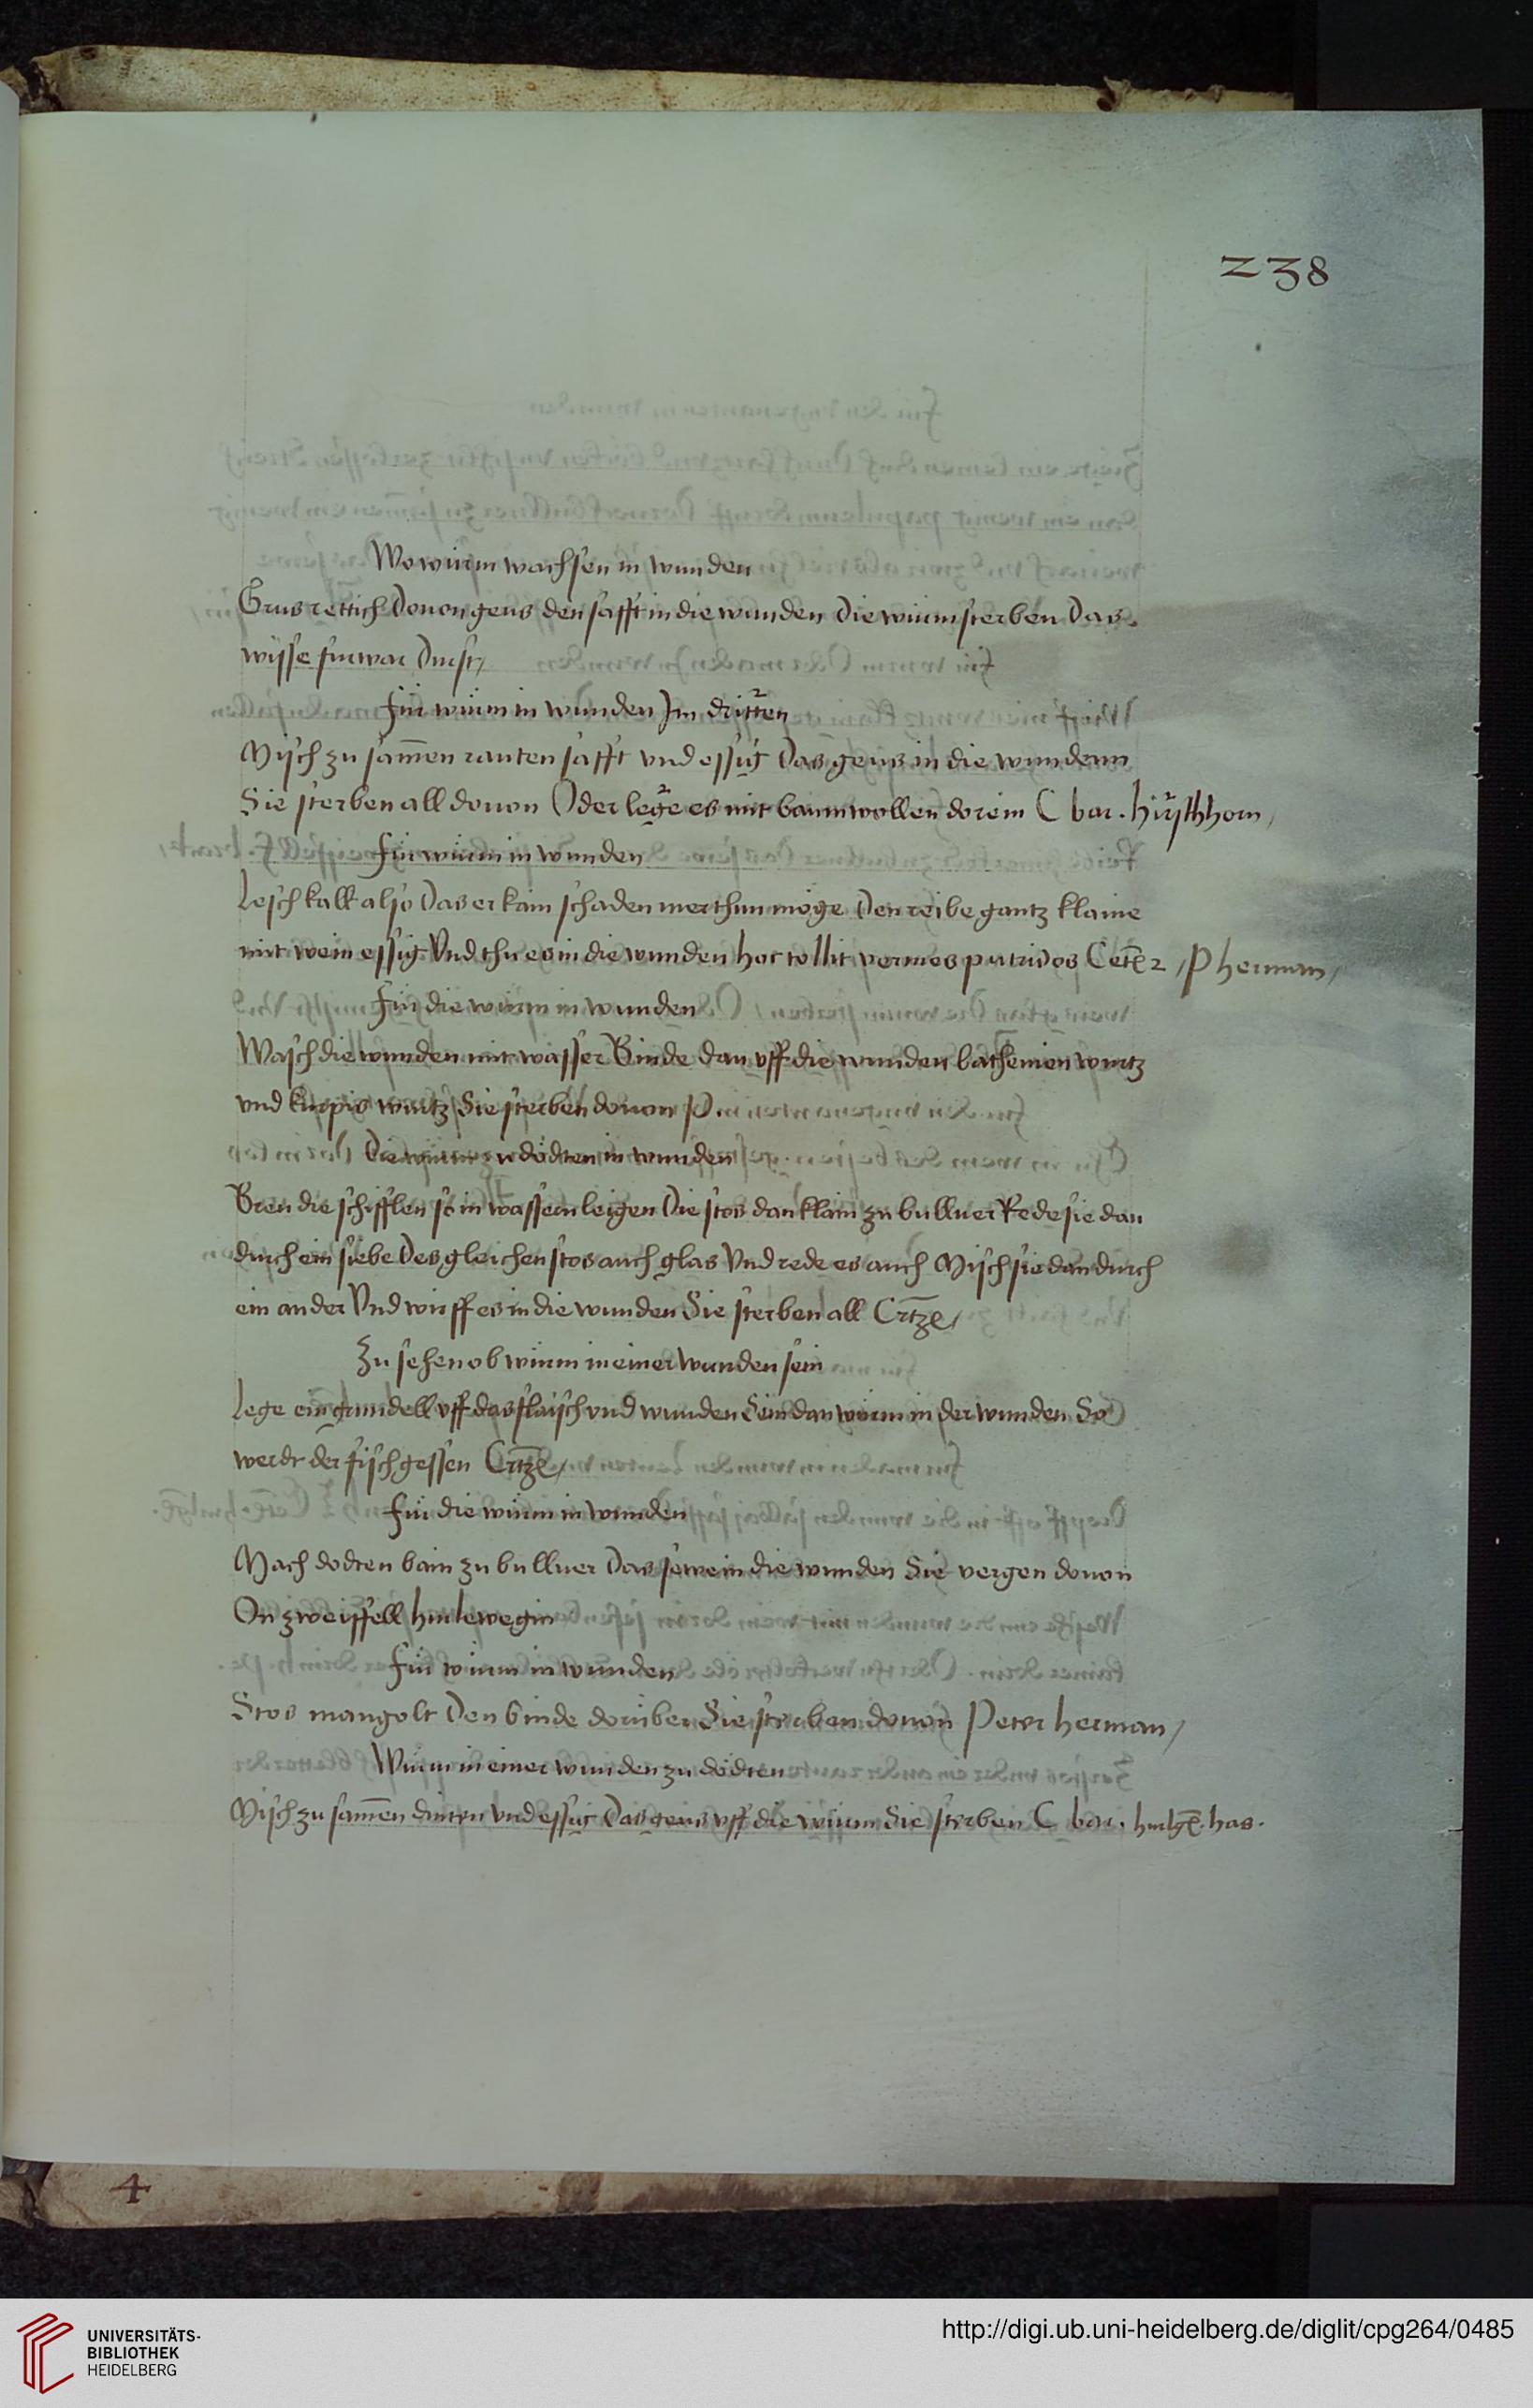 238
Wo wurm wachsen in wunden
Grus rettich Douon geus den safft in die wunden Die wurm sterben Das
wisse furwar Durst,
Für würm in wunden Im dritten
Misch zu samen rauten safft vnd essig Das geus in die wundenn
Sie sterben all douon Oder lege es mit baumwollen dorein C bar. hirschhorn,
Für würm in wunden
Lesch kalk also Das er kain schaden mer thun möge Den reibe gantz klaine
mit wein essig Vnd thu es in die wunden hoc tollit vermes putridos P herman,
Für die würm in wunden
Wasch die wunden mit wasser Binde dan vff die wunden bathenien wurtz
vnd kürpis wurtz Sie sterben douon P.
Die würm zu dödten in wunden
Bren die schifflen so in wassern leigen Die stos dan klain zu bulluer Rede sie dan
durch ein siebe Desgleichen stos auch glas Vnd rede es auch Misch sie dan durch
ein ander Vnd wirff es in die wunden Sie sterben all
Zu sehen ob würm in einer wunden sein
Lege ein grundell vff das flaisch vnd wunden Sein dan würm in der wunden So
werdt der fisch gessen
Für die würm in wunden
Mach dodten bain zu bulluer Das sewe in die wunden Sie vergen douon
On zweiffell
Für würm in wunden
Stos mangolt Den binde dorüber Sie sterben douon Peter herman,
Würm in einer wunden zu dödten
Misch zu samen dinten vnd essig Das geus vff die würm Sie sterben C bar. has.
4
UNIVERSITÄTS-
BIBLIOTHEK
HEIDELBERG
http://digi.ub.uni-heidelberg.de/diglit/cpg264/0485